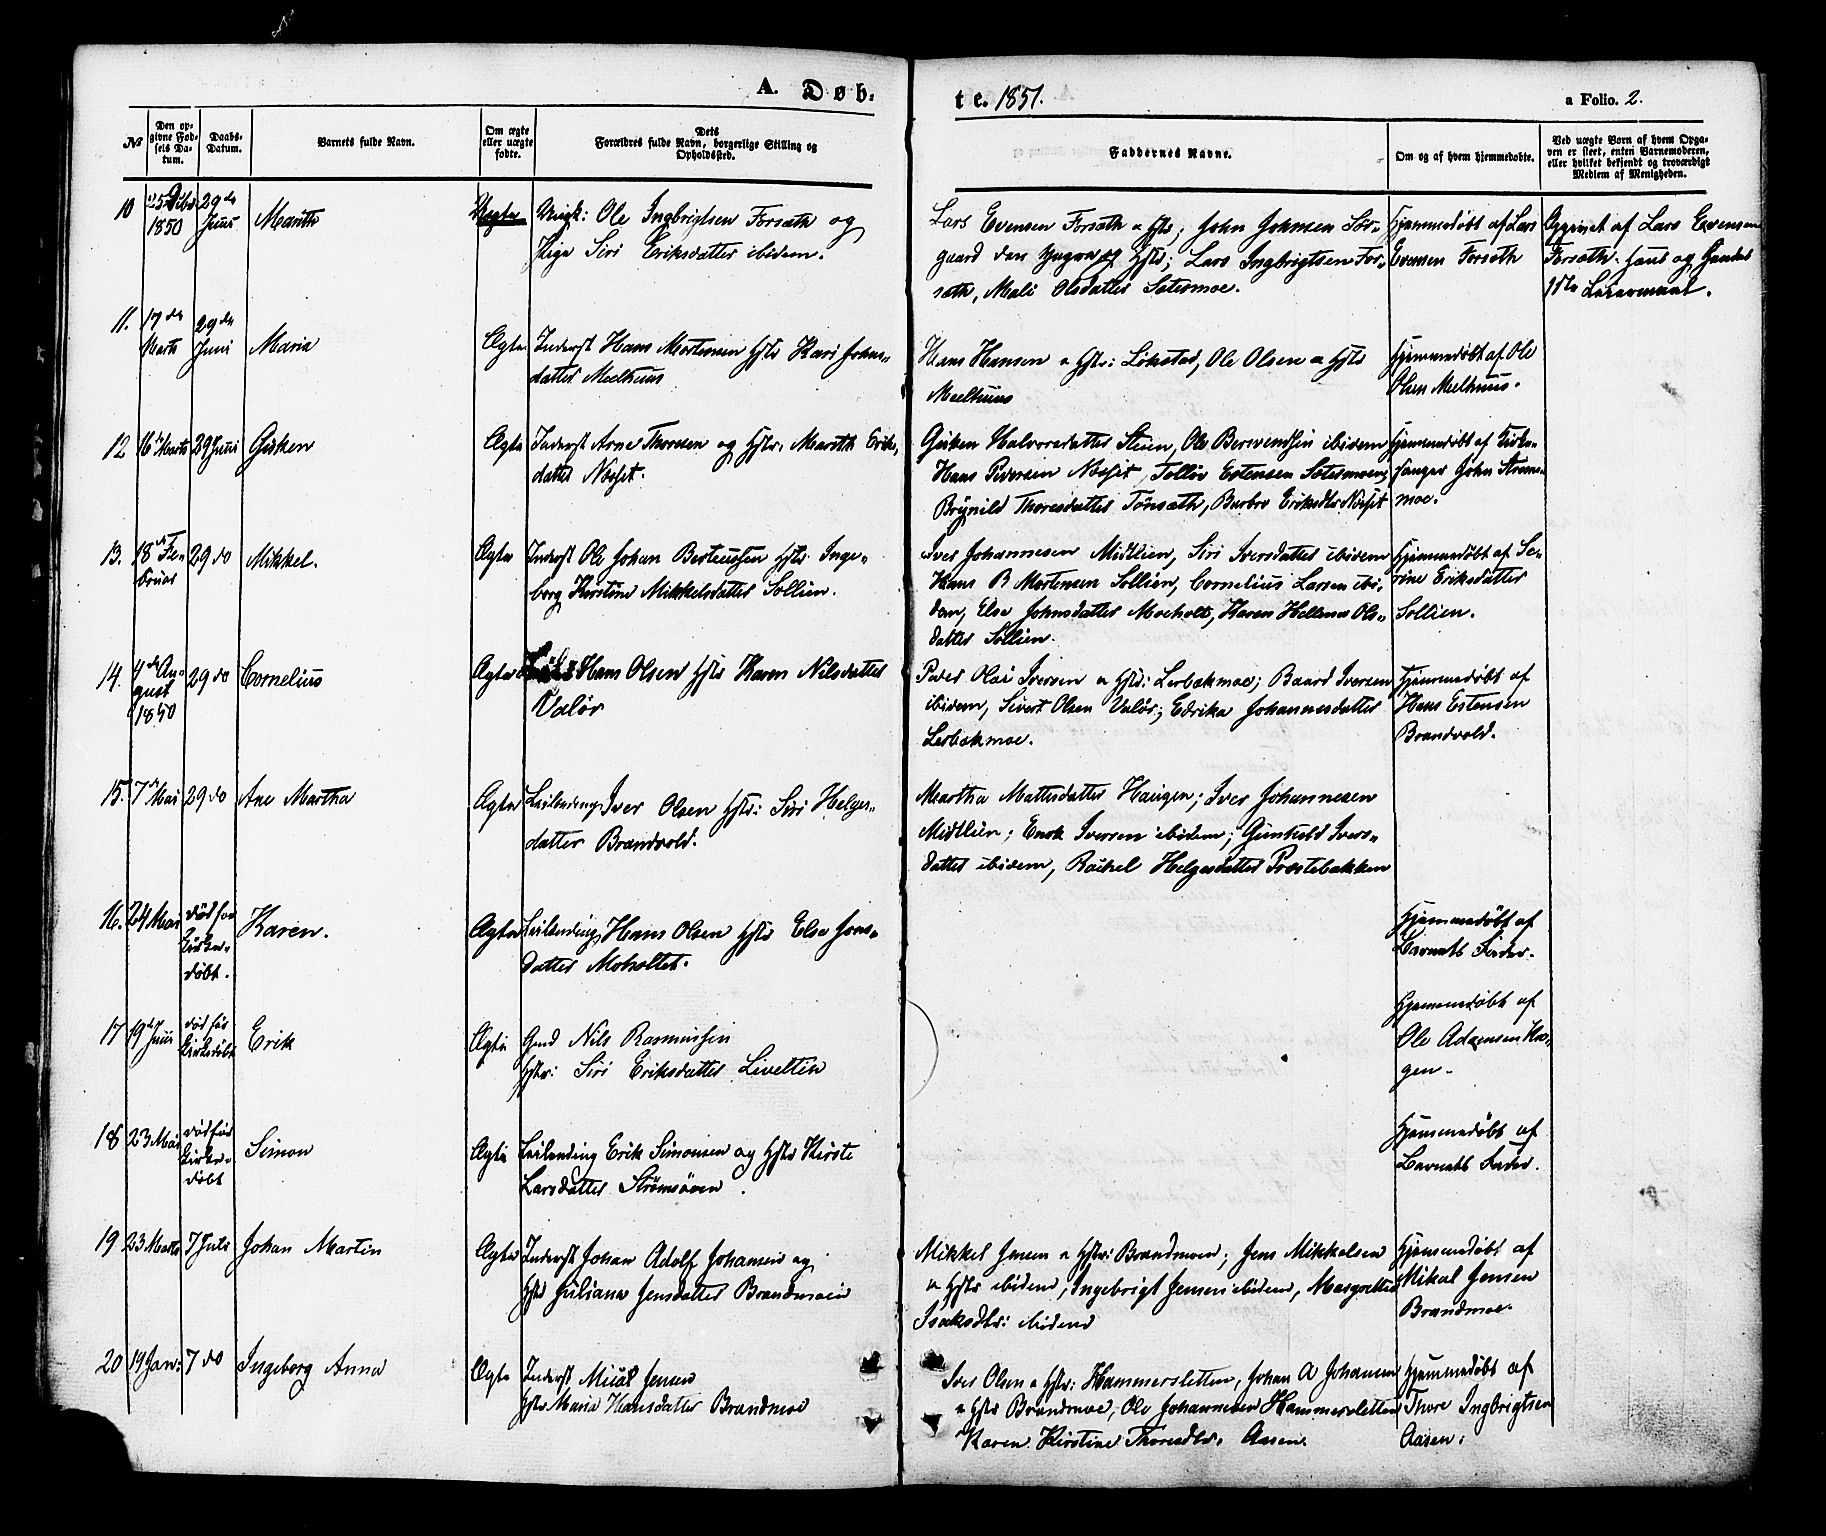 A. Døb-
te. 1851.
a Folio. 2.
№
Den op-
givne Fød-
sels Da-
tum.
Daabs-
Datum.
Barnets fulde Navn.
Om ægte
eller uægte
fødte.
Dets
Forældres fulde Navn, borgerlige Stilling og
Opholdssted.
Faddernes Navne.
Om og af hvem hjemmedøbte.
Ved uægte Børn af hvem Opga-
ven er skeet, enten Barnemoderen,
eller hvilket bekjendt og troværdigt
Medlem af Menigheden.
10
1850
29de
Juni
Marith
Uægte
Ungk: Ole Ingbrigtsen Forsæth og
Pige Siri Eriksdatter ibidem.
Lars Evensen Forsæth & Hstr; John Johnsen Sør-
gaard den yngre og Hstr; Lars Ingbrigtsen For-
sæth, Mali Olsdatter Sætermoe.
Hjemmedøbt af Lars
Evensen Forsæth
Opgivet af Lars Evensen
Forsæth. hans og hendes
1ste Leiermaal.
11.
17de
Marts
29de
Juni
Maria
Ægte
Inderst Hans Mortensen Hstr Kari Johns-
datter Meelhuus
Hans Hansen & Hstr: Løkstad, Ole Olsen & Hstr
Meelhuus
Hjemmedøbt af Ole
Olsen Meelhuus.
12
16de Marts
29 Juni
Gjøken
Ægte
Inderst Arne Thoresen og Hstr. Marith Eriks-
datter Næsset.
Halvorsdatter Steien, Ole Berevendsen ibidem
Hans Pedersen Næsset, Tolløv Estensen Sætermoen;
Brynild Thoresdatter Tønsæth, Barbro Eriksdtr Næsset
Hjemmedøbt af Kirke-
sanger John Strøm-
moe.
13.
18de Fe-
bruar
29 do
Mikkel.
Ægte
Inderst Ole Johan Berteussen Hstr. Inge-
borg Kirstine Mikkelsdatter Sollien.
Iver Johannesen Midtlien, Siri Iversdatter ibidem
Hans B Mortensen Sollien, Cornelius Larsen ibi-
dem, Else Johnsdatter Moeholt, Karen Hellena Ols-
datter Sollien.
Hjemmedøbt af Se-
rine Eriksdatter
Sollien.
14.
4de Au-
gust
1850
29 do
Cornelius
Ægte
Hans Olsen Hstr Karen Nilsdatter
Valør
Peder Olai Iversen & Hstr: Lerbækmoe; Baard Iversen
ibidem, Sivert Olsen Valør; Edrika Johannesdatter
Lerbækmoe.
Hjemmedøbt af
Hans Estensen
Brandvold.
15.
7de Mai
29 do
Ane Martha
Ægte
Leilending Iver Olsen Hstr: Siri Helges-
datter Brandvold.
Martha Mattisdatter Haugen; Iver Johannesen
Midtlien; Enok Iversen ibidem; Gunhild Ivers-
datter ibidem, Rachel Helgesdatter Præstebakken
16.
24 Mai
død før
Kirke-
døbt.
Karen.
Ægte
Leilending Hans Olsen Hstr Else Jons-
datter Moholtet.
Hjemmedøbt af
Barnets Fader.
17
19de Juni
død før
Kirkedøbt
Erik
Ægte
Gmd Nils Rasmussen
Hstr: Siri Eriksdatter Liveltlien
Hjemmedøbt af
Ole Adzensen Hau-
gen.
18
23 Mai
død før
Kirke-
døbt
Simon
Ægte
Leilending Erik Simonsen og Hstr Kirste
Larsdatter Strømsøren.
Hjemmedøbt af
Barnets Fader.
19
23 Marts
7 Juli
Johan Martin
Ægte
Inderst Johan Adolf Johansen og
Hstr Juliana Jensdatter Brandmoen
Mikkel Jensen & Hstr: Brandmoen; Jens Mikkelsen
& Hstr ibidem, Ingebrigt Jensen ibidem, Margrethe
Isaksdtr: ibidem
Hjemmedøbt af
Mikal Jensen
Brandmoe.
20
19 Jan:
7 do
Ingeborg Anna
Ægte
Inderst Mical Jensen
Hstr Maria Hansdatter Brandmoe
Iver Olsen & Hstr: Hammersletten, Johan A Johansen
& Hstr Brandmoe, Ole Johannesen Hammersletten
Karen Kirstine Thoresdtr. Aasen.
Hjemmedøbt af
Thore Ingbrigtsen
Aasen.